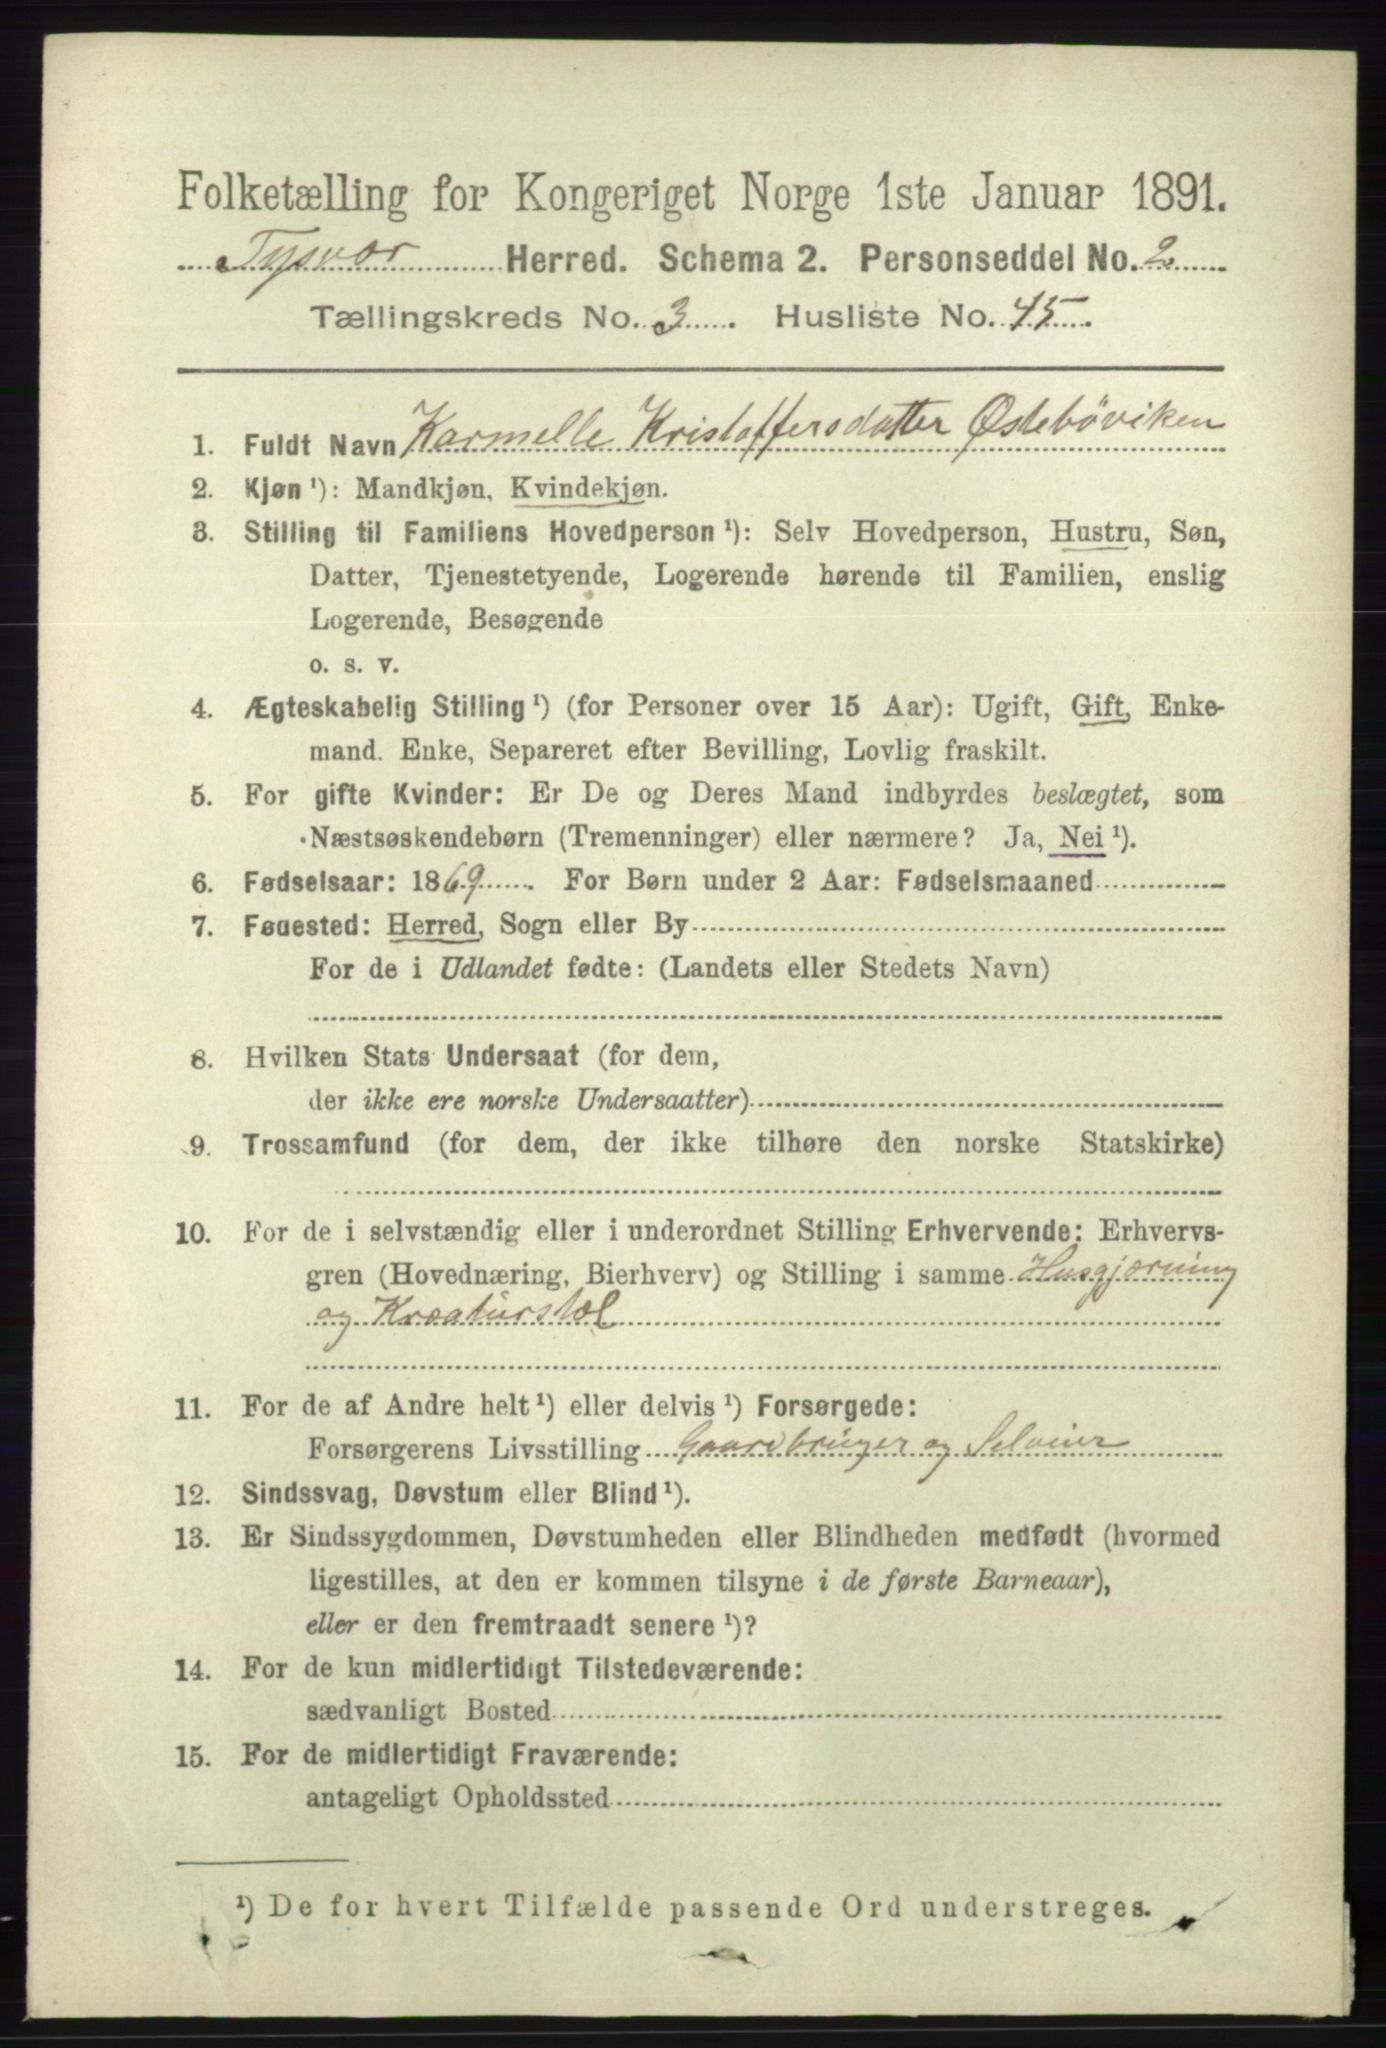 Folketælling for Kongeriget Norge 1ste Januar 1891.
Tysvær Herred. Schema 2. Personseddel No. 2
Tællingskreds No. 3. Husliste No. 45.
1. Fuldt Navn Karmelle Kristoffersdatter Østeböviken
2. Kjøn ¹): Mandkjøn, Kvindekjøn.
3. Stilling til Familiens Hovedperson ¹): Selv Hovedperson, Hustru, Søn,
Datter, Tjenestetyende, Logerende hørende til Familien, enslig
Logerende, Besøgende
o. s. v.
4. Ægteskabelig Stilling ¹) (for Personer over 15 Aar): Ugift, Gift, Enke-
mand. Enke, Separeret efter Bevilling, Lovlig fraskilt.
5. For gifte Kvinder: Er De og Deres Mand indbyrdes beslægtet, som
Næstsøskendebørn (Tremenninger) eller nærmere? Ja, Nei ¹).
6. Fødselsaar: 1869. For Børn under 2 Aar: Fødselsmaaned
7. Føuested: Herred, Sogn eller By
For de i Udlandet fødte: (Landets eller Stedets Navn)
8. Hvilken Stats Undersaat (for dem,
der ikke ere norske Undersaatter)
9. Trossamfund (for dem, der ikke tilhøre den norske Statskirke)
10. For de i selvstændig eller i underordnet Stilling Erhvervende: Erhvervs-
gren (Hovednæring, Bierhverv) og Stilling i samme Husgjerning
og Kreaturstel
11. For de af Andre helt ¹) eller delvis ¹) Forsørgede:
Forsørgerens Livsstilling Gaardbruger og Seleier
12. Sindssvag, Døvstum eller Blind ¹).
13. Er Sindssygdommen, Døvstumheden eller Blindheden medfødt (hvormed
ligestilles, at den er kommen tilsyne i de første Barneaar),
eller er den fremtraadt senere ¹)?
14. For de kun midlertidigt Tilstedeværende:
sædvanligt Bosted
15. For de midlertidigt Fraværende:
antageligt Opholdssted
¹) De for hvert Tilfælde passende Ord understreges.